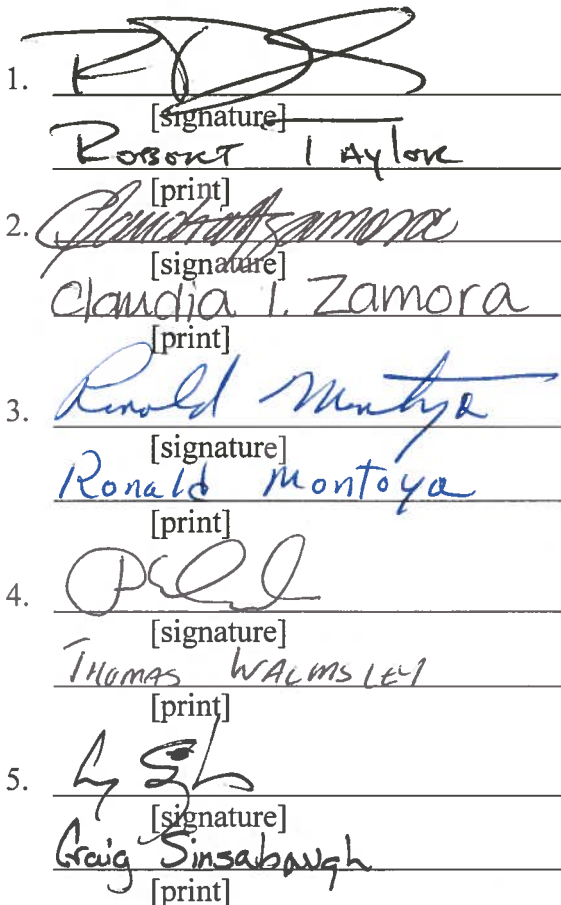 1.
[signature]
Robert Taylor
[print]
2. Claudia I Zamora
[signature]
Claudia I. Zamora
[print]
3. Ronald Montoya
[signature]
Ronald Montoya
[print]
4.
[signature]
THOMAS WALMSLEY
[print]
5.
[signature]
Craig Sinsabaugh
[print]